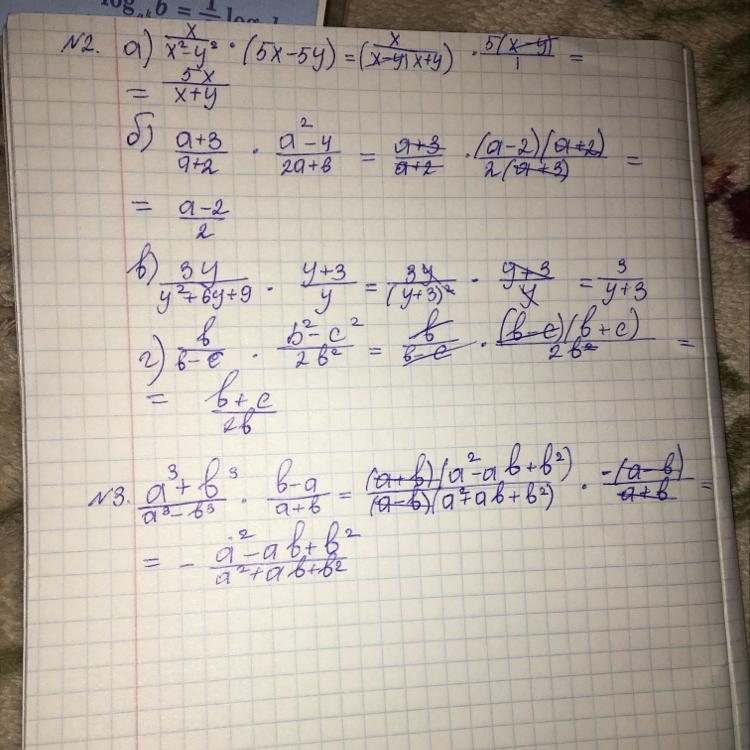 log b = 1
N2. а) x/(x²-y²) · (5x-5y) = (x/(x-y)(x+y)) · 5(x-y)/1 =
= 5x/(x+y)
б) (a+3)/(a+2) · (a²-4)/(2a+6) = (a+3)/(a+2) · (a-2)(a+2)/2(a+3) =
= (a-2)/2
в) 3y/(y²+6y+9) · (y+3)/y = 3y/(y+3)² · (y+3)/y = 3/(y+3)
г) b/(b-c) · (b²-c²)/2b² = b/(b-c) · (b-c)(b+c)/2b² =
= (b+c)/2b
N3. (a³+b³)/(a³-b³) · (b-a)/(a+b) = (a+b)(a²-ab+b²)/(a-b)(a²+ab+b²) · -(a-b)/(a+b) =
= - (a²-ab+b²)/(a²+ab+b²)